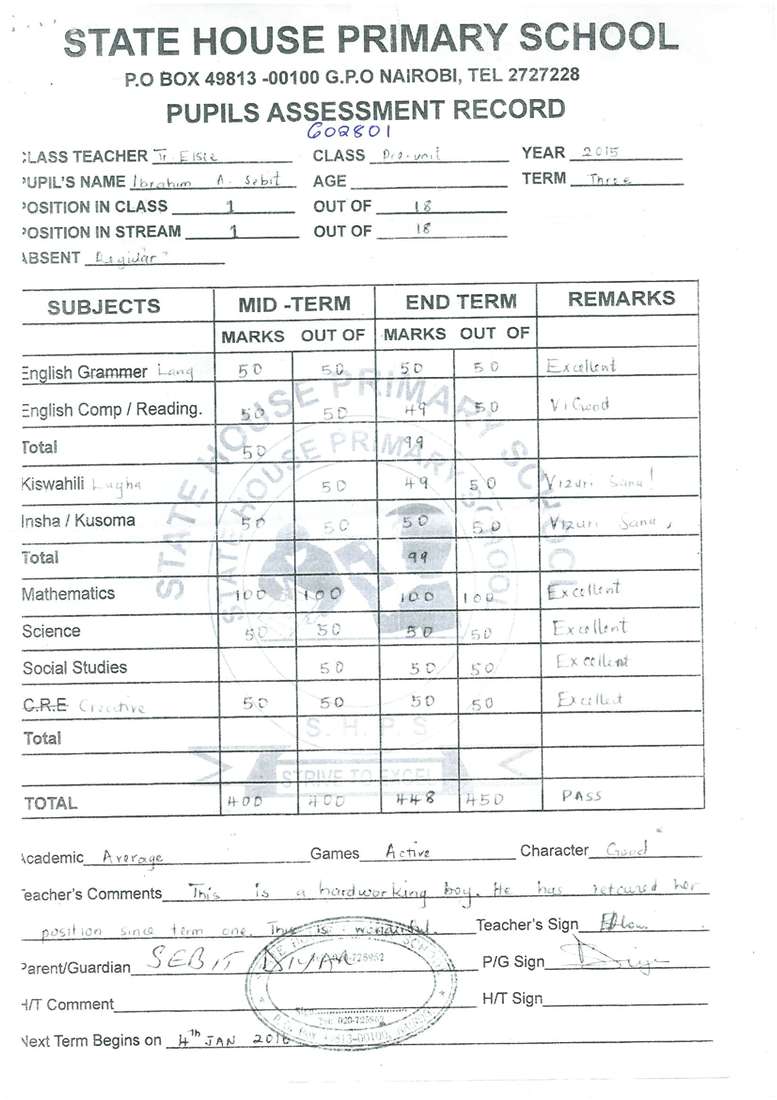 STATE HOUSE PRIMARY SCHOOL
P.O BOX 49813 -00100 G.P.O NAIROBI, TEL 2727228
PUPILS ASSESSMENT RECORD
602801
CLASS TEACHER Tr Elsie CLASS Pre-unit YEAR 2015
PUPIL'S NAME Ibrahim A. Sebit AGE TERM Three
POSITION IN CLASS 1 OUT OF 18
POSITION IN STREAM 1 OUT OF 18
ABSENT Regular
SUBJECTS MID -TERM END TERM REMARKS
MARKS OUT OF MARKS OUT OF
English Grammer Lang 50 50 50 50 Excellent
English Comp / Reading. 50 50 49 50 V. Good
Total 50 99
Kiswahili Lugha 50 49 50 Vizuri Sana!
Insha / Kusoma 50 50 50 50 Vizuri Sana,
Total 99
Mathematics 100 100 100 100 Excellent
Science 50 50 50 50 Excellent
Social Studies 50 50 50 Excellent
C.R.E Creative 50 50 50 50 Excellent
Total
TOTAL 400 400 448 450 PASS
STATE HOUSE PRIMARY SCHOOL
STATE HOUSE PRIMARY SCHOOL
S.H.P.S
STRIVE TO EXCEL
Academic Average Games Active Character Good
Teacher's Comments This is a hardworking boy. He has retained her
position since term one. This is wonderful. Teacher's Sign
Parent/Guardian SEBIT P/G Sign
H/T Comment H/T Sign
Next Term Begins on 4th JAN 2016